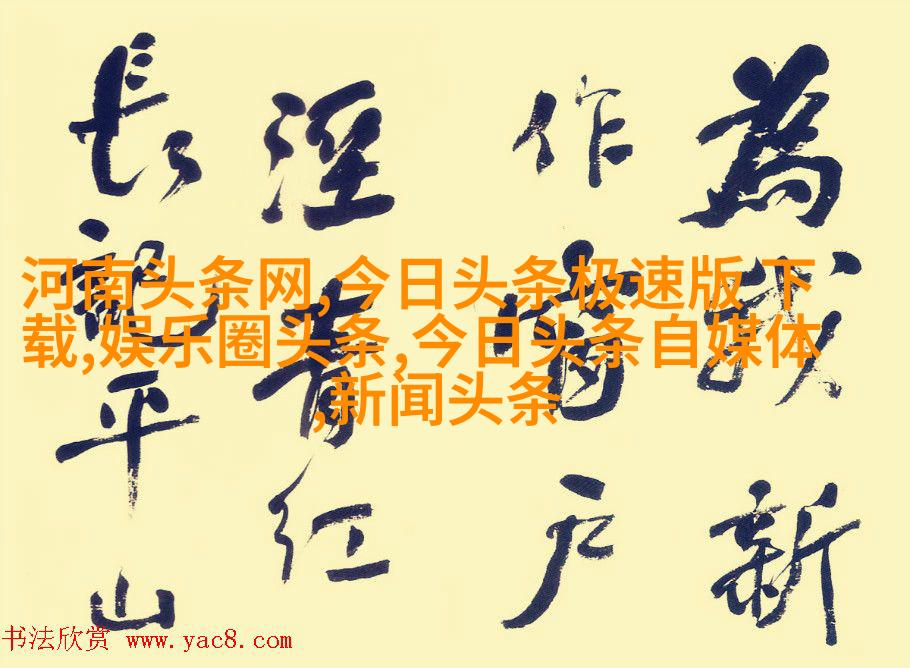 為我新
作窗户
溼青红
長記平山
河南头条网,今日头条极速版下
载,娱乐圈头条,今日头条自媒体
,新闻头条
书法欣赏 www.yac8.com